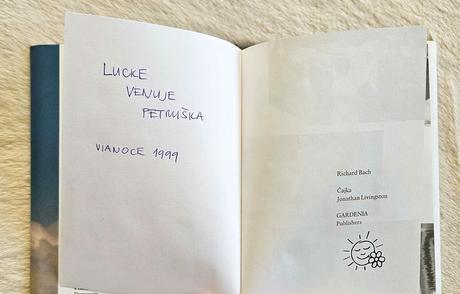 LUCKE
VENUJE
PETRUŠKA
VIANOCE 1999
Richard Bach
Čajka
Jonathan Livingston
GARDENIA
Publishers